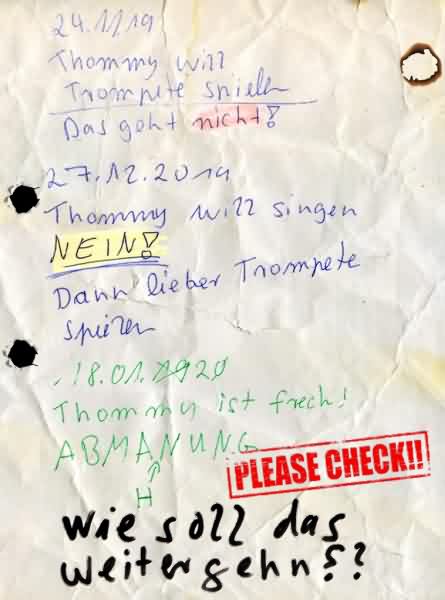 24.11/19
Thommy will
Trompete spielen
Das geht nicht!
27.12.2019
Thommy will singen
NEIN!
Dann lieber Trompete
spielen
18.01.1920
Thommy ist frech!
ABMANUNG
H
PLEASE CHECK!!
Wie soll das
weitergehn??